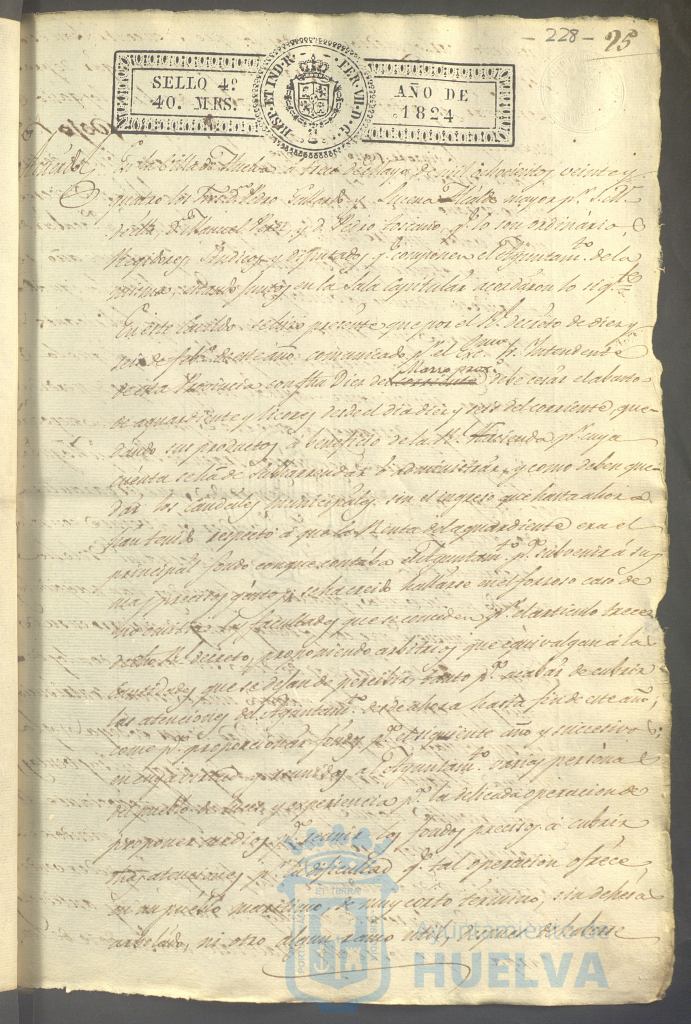 - 228 - 95
HISP. ET IND. R. FER. VII. D. G.
SELLO 4º
40. MRS.
AÑO DE
1824
Acuerdo
En la Villa de Huelva a trece de Mayo de mil ochocientos veinte y
quatro los Señores Dn. Pedro y Mayor pr. S.M.
Dn. Manuel y Dn. Pedro qe. lo son ordinarios,
Regidores, Sindicos y Diputados qe. componen el Ayuntamto. de la
misma, estando juntos en la Sala Capitular acordaron lo sigte.
En este Cavildo se hizo presente que por el Rl. decreto de diez y
seis de febo. de este año comunicado pr. el Exmo. Sr. Intendente
de esta Provincia con fha Diez de Marzo prox. debe cesar el abasto
de aguardiente y licores desde el dia diez y seis del corriente que-
dando sus productos a beneficio de la Rl. Hacienda pr. cuya
cuenta se ha de subarrendar o administrar, y como deben que-
dar los caudales municipales sin el ingreso que hasta ahora
han tenido respecto á que la Renta del aguardiente era el
principal fondo con que contaba el Ayuntamto. pa. subvenir á sus
mas precisos gastos, se ha creido hallarse en el forzoso caso de
las facultades que se conceden pr. el articulo trece
de dho Rl. decreto, proponiendo arbitrios que equivalgan á las
cantidades que se dejan de percibir tanto pa. acabar de cubrir
las atenciones del Ayuntamto. desde ahora hasta fin de este año,
como pa. proporcionar fondos pa. el siguiente año y sucesivos;
en cuya virtud reunidos al Ayuntamto. varias personas
del pueblo de luces y experiencia pa. la delicada operacion de
proponer medios pa. reunir los fondos precisos á cubrir
sus atenciones pr. la dificultad qe. tal operacion ofrece
en un pueblo maritimo, de muy corto termino, sin dehesa
ni otro algun ramo
Ayuntamiento de
HUELVA